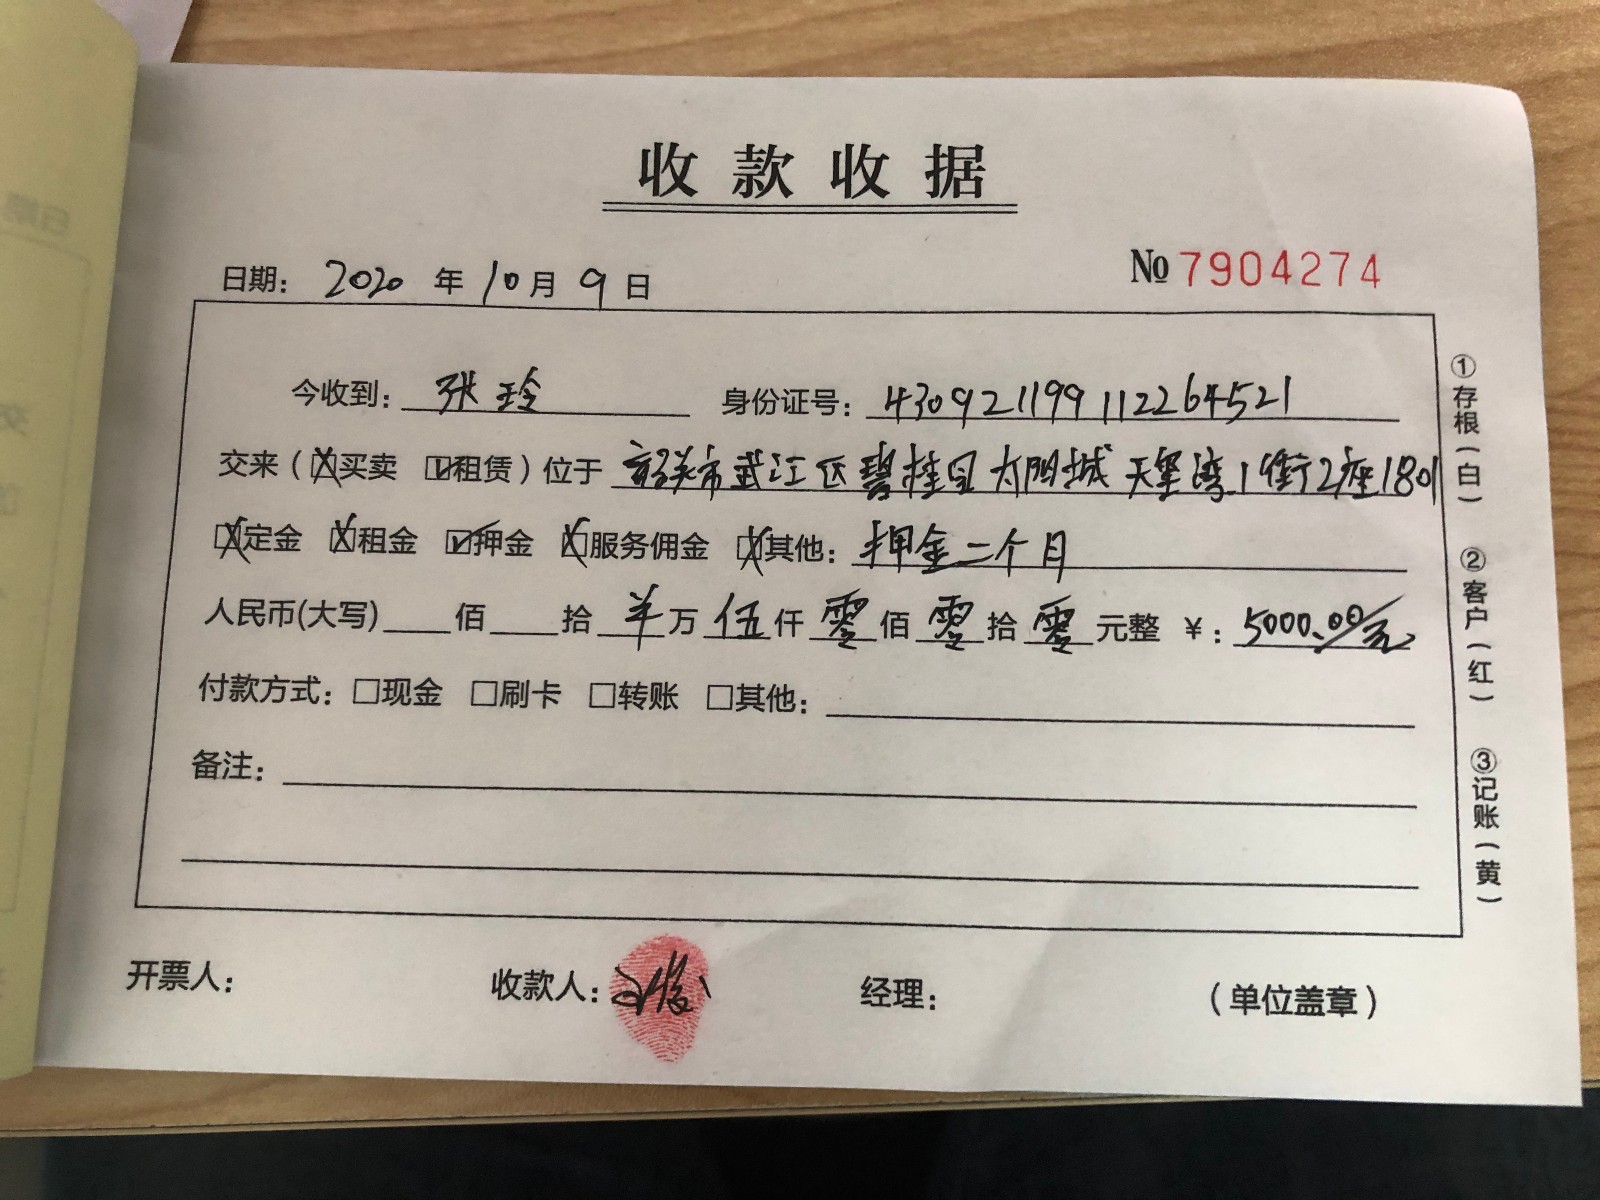 收款收据
日期： 2020 年 10 月 9 日
№ 7904274
今收到： 张玲 身份证号： 430921199112264521
交来（☒买卖 ☑租赁）位于 韶关市武江区碧桂园太阳城天玺湾1街2座1801
☒定金 ☒租金 ☑押金 ☒服务佣金 ☒其他： 押金二个月
人民币(大写)____佰____拾 羊 万 伍 仟 零 佰 零 拾 零 元整 ￥： 5000.00/元
付款方式：□现金 □刷卡 □转账 □其他：
备注：
开票人： 收款人： 经理： （单位盖章）
①存根（白）
②客户（红）
③记账（黄）